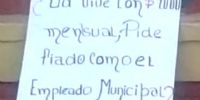 ¿Ud Vive con $1000
mensual, Pide
Fiado como el
Empleado Municipal?